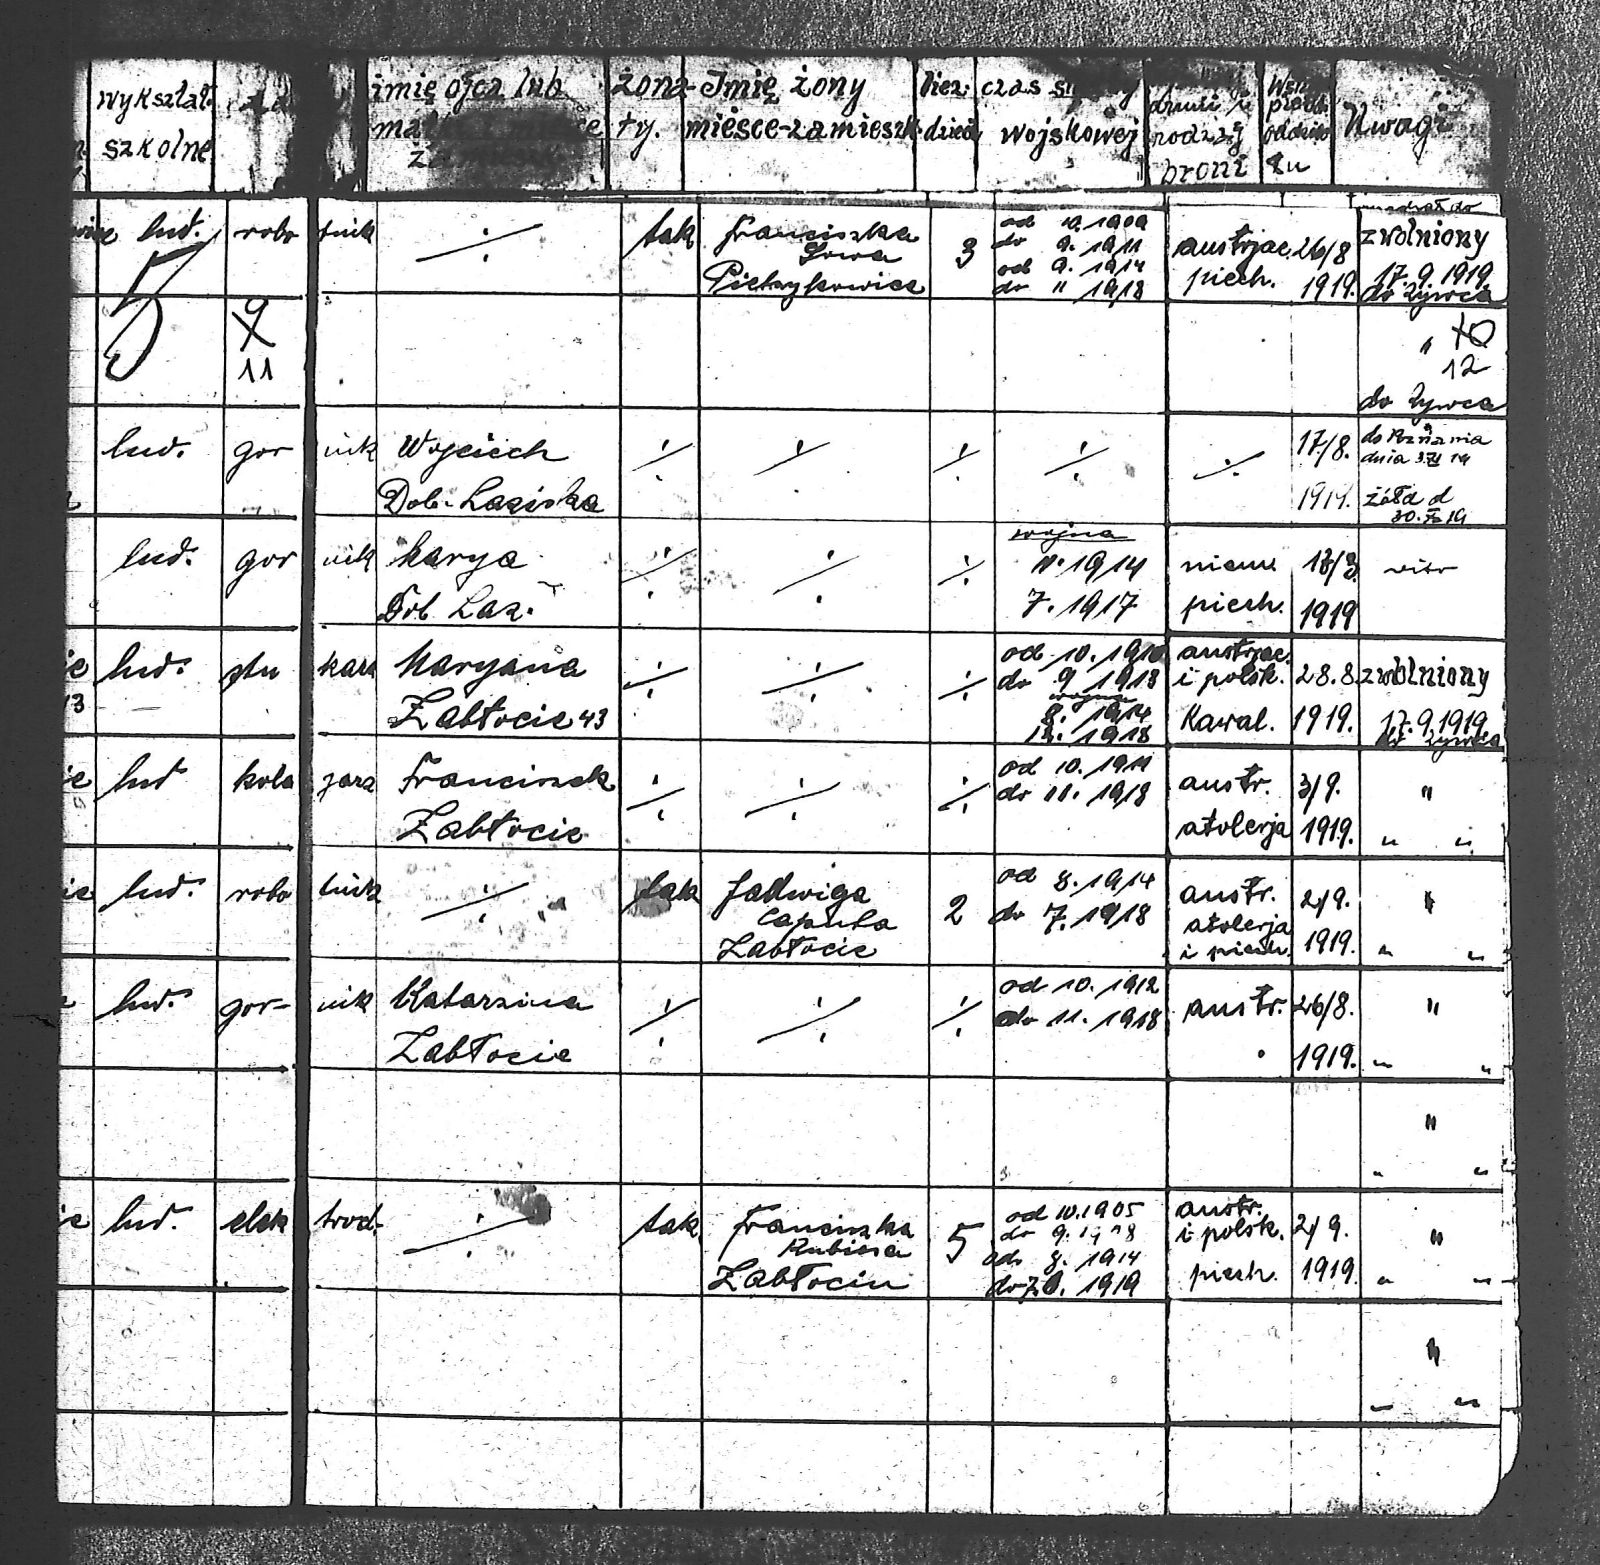 wykształ.
szkolne
imię ojca lub
żona-
ty.
Imię żony
miesce-zamieszk
licz.
dzieci
czas
wojskowej
rodzaj
broni
Uwagi
lud. robo tnik ÷ tak Franciszka
Sowa
Pietrzykowice
3
od 10.1909
do 9.1911
od 9.1914
do 11 1918
austrjac.
piech.
26/8
1919.
zwolniony
17.9.1919.
do Żywca
5
9
X
11
" 10
12
do Żywca
lud. gor nik Wojciech
Dob. Laziska
÷ ÷ ÷ ÷ ÷
17/8.
1919.
do Poznania
dnia
żołd d
30. 19
lud. gor nik Marya
Dob. Laz.
÷ ÷ ÷
wojna
11.1914
7.1917
niem
piech.
1919
ie
13
lud. stu karz Maryana
Zabłocie 43
÷ ÷ ÷
od 10.1910
do 9 1913
wojna
8. 1914
12. 1918
austrjac.
i polsk.
Kawal.
28.8
1919.
zwolniony
17.9.1919
do Żywca
ie lud kolo jarz Franciszek
Zabłocie
÷ ÷ ÷
od 10. 1911
do 11. 1918
austr.
atolerja
3/9.
1919.
"
" "
ie lud. robo tnik ÷ tak Jadwiga
Caputa
Zabłocie
2
od 8.1914
do 7.1918
austr.
atolerja
i piech.
2/9.
1919.
"
" "
lud. gor- nik Katarzina
Zabłocie
÷ ÷ ÷
od 10. 1912
do 11. 1918
austr.
26/8.
1919.
"
" "
"
" "
ie lud. elek trod. ÷ tak Franciszka
Kubica
Zabłociu
5
od 10.1905
do 9.
od 8. 1914
1919
austr.
i polsk.
piech.
2/9.
1919.
"
" "
"
" "